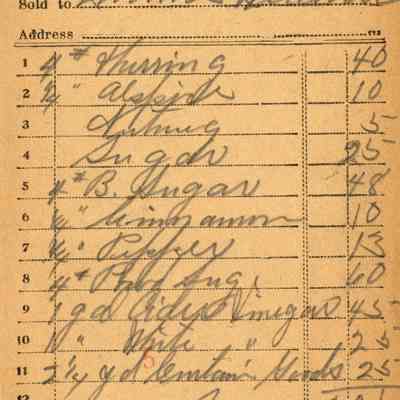 Sold to
Address
1 4 # Herring 40
2 ¼ " Allspice 10
3 Nutmeg 5
4 Sugar 25
5 4 # B. Sugar 48
6 ¼ " Cinnamon 10
7 ¼ " Pepper 13
8 4 # 60
9 1 gal Cider Vinegar 45
10 1 " White " 25
11 2 ¼ yd Curtain Goods 25
12